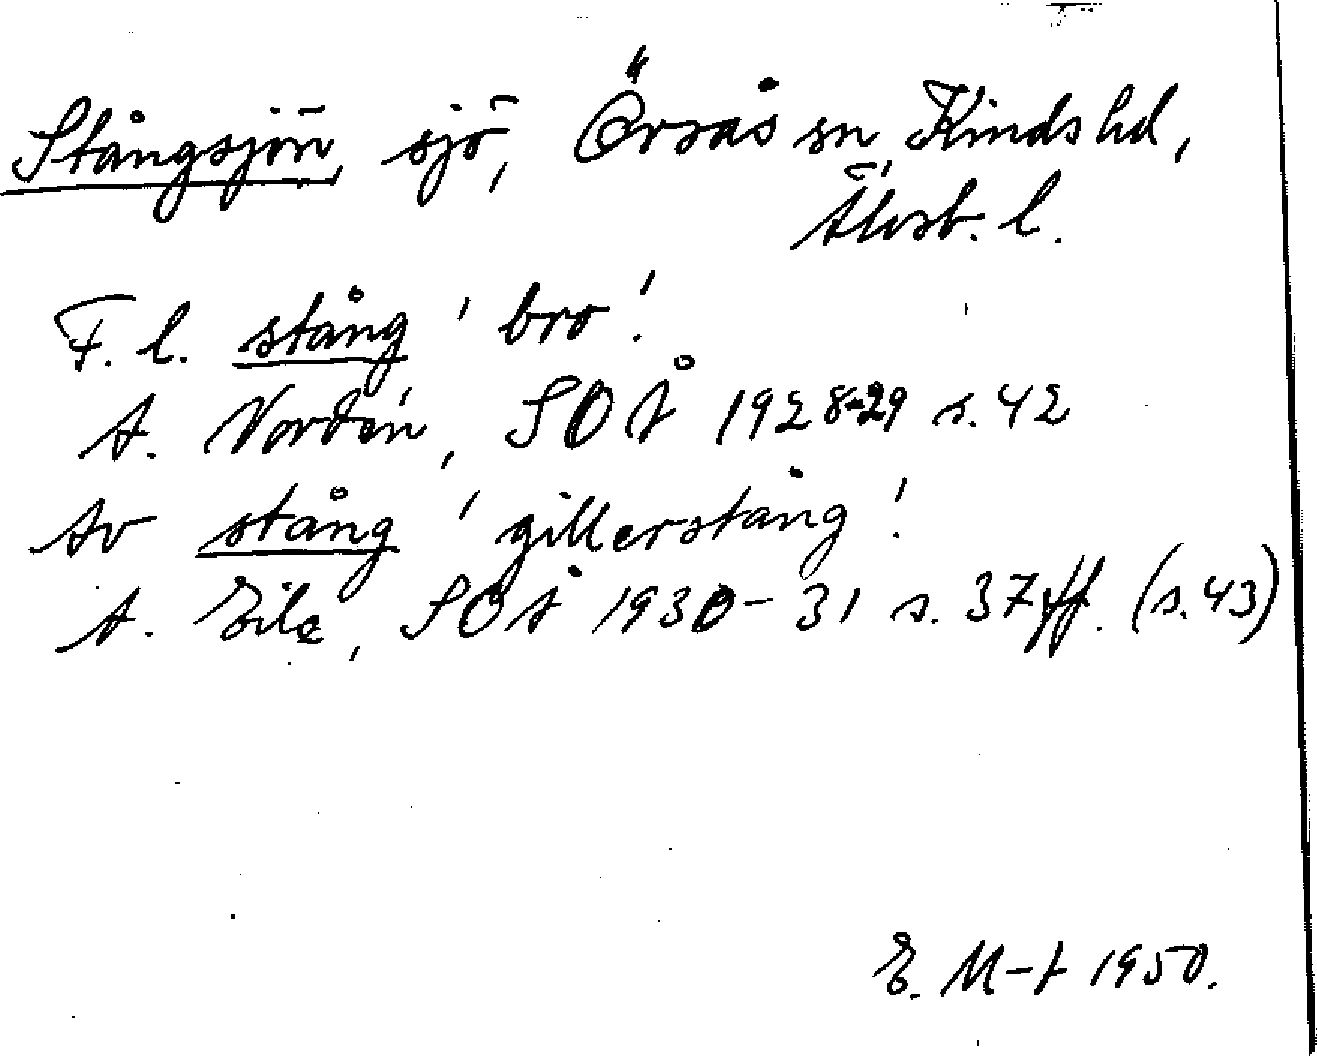 Stångsjön, sjö, Örsås sn, Kinds hd,
Älvsb. l.
F. l. stång 'bro'.
A. Nordén, SOÅ 1928-29 s. 42
Av stång 'gillerstång'.
A. Eile, SOÅ 1930-31 s. 37 ff. (s. 43)
E. M-t 1950.